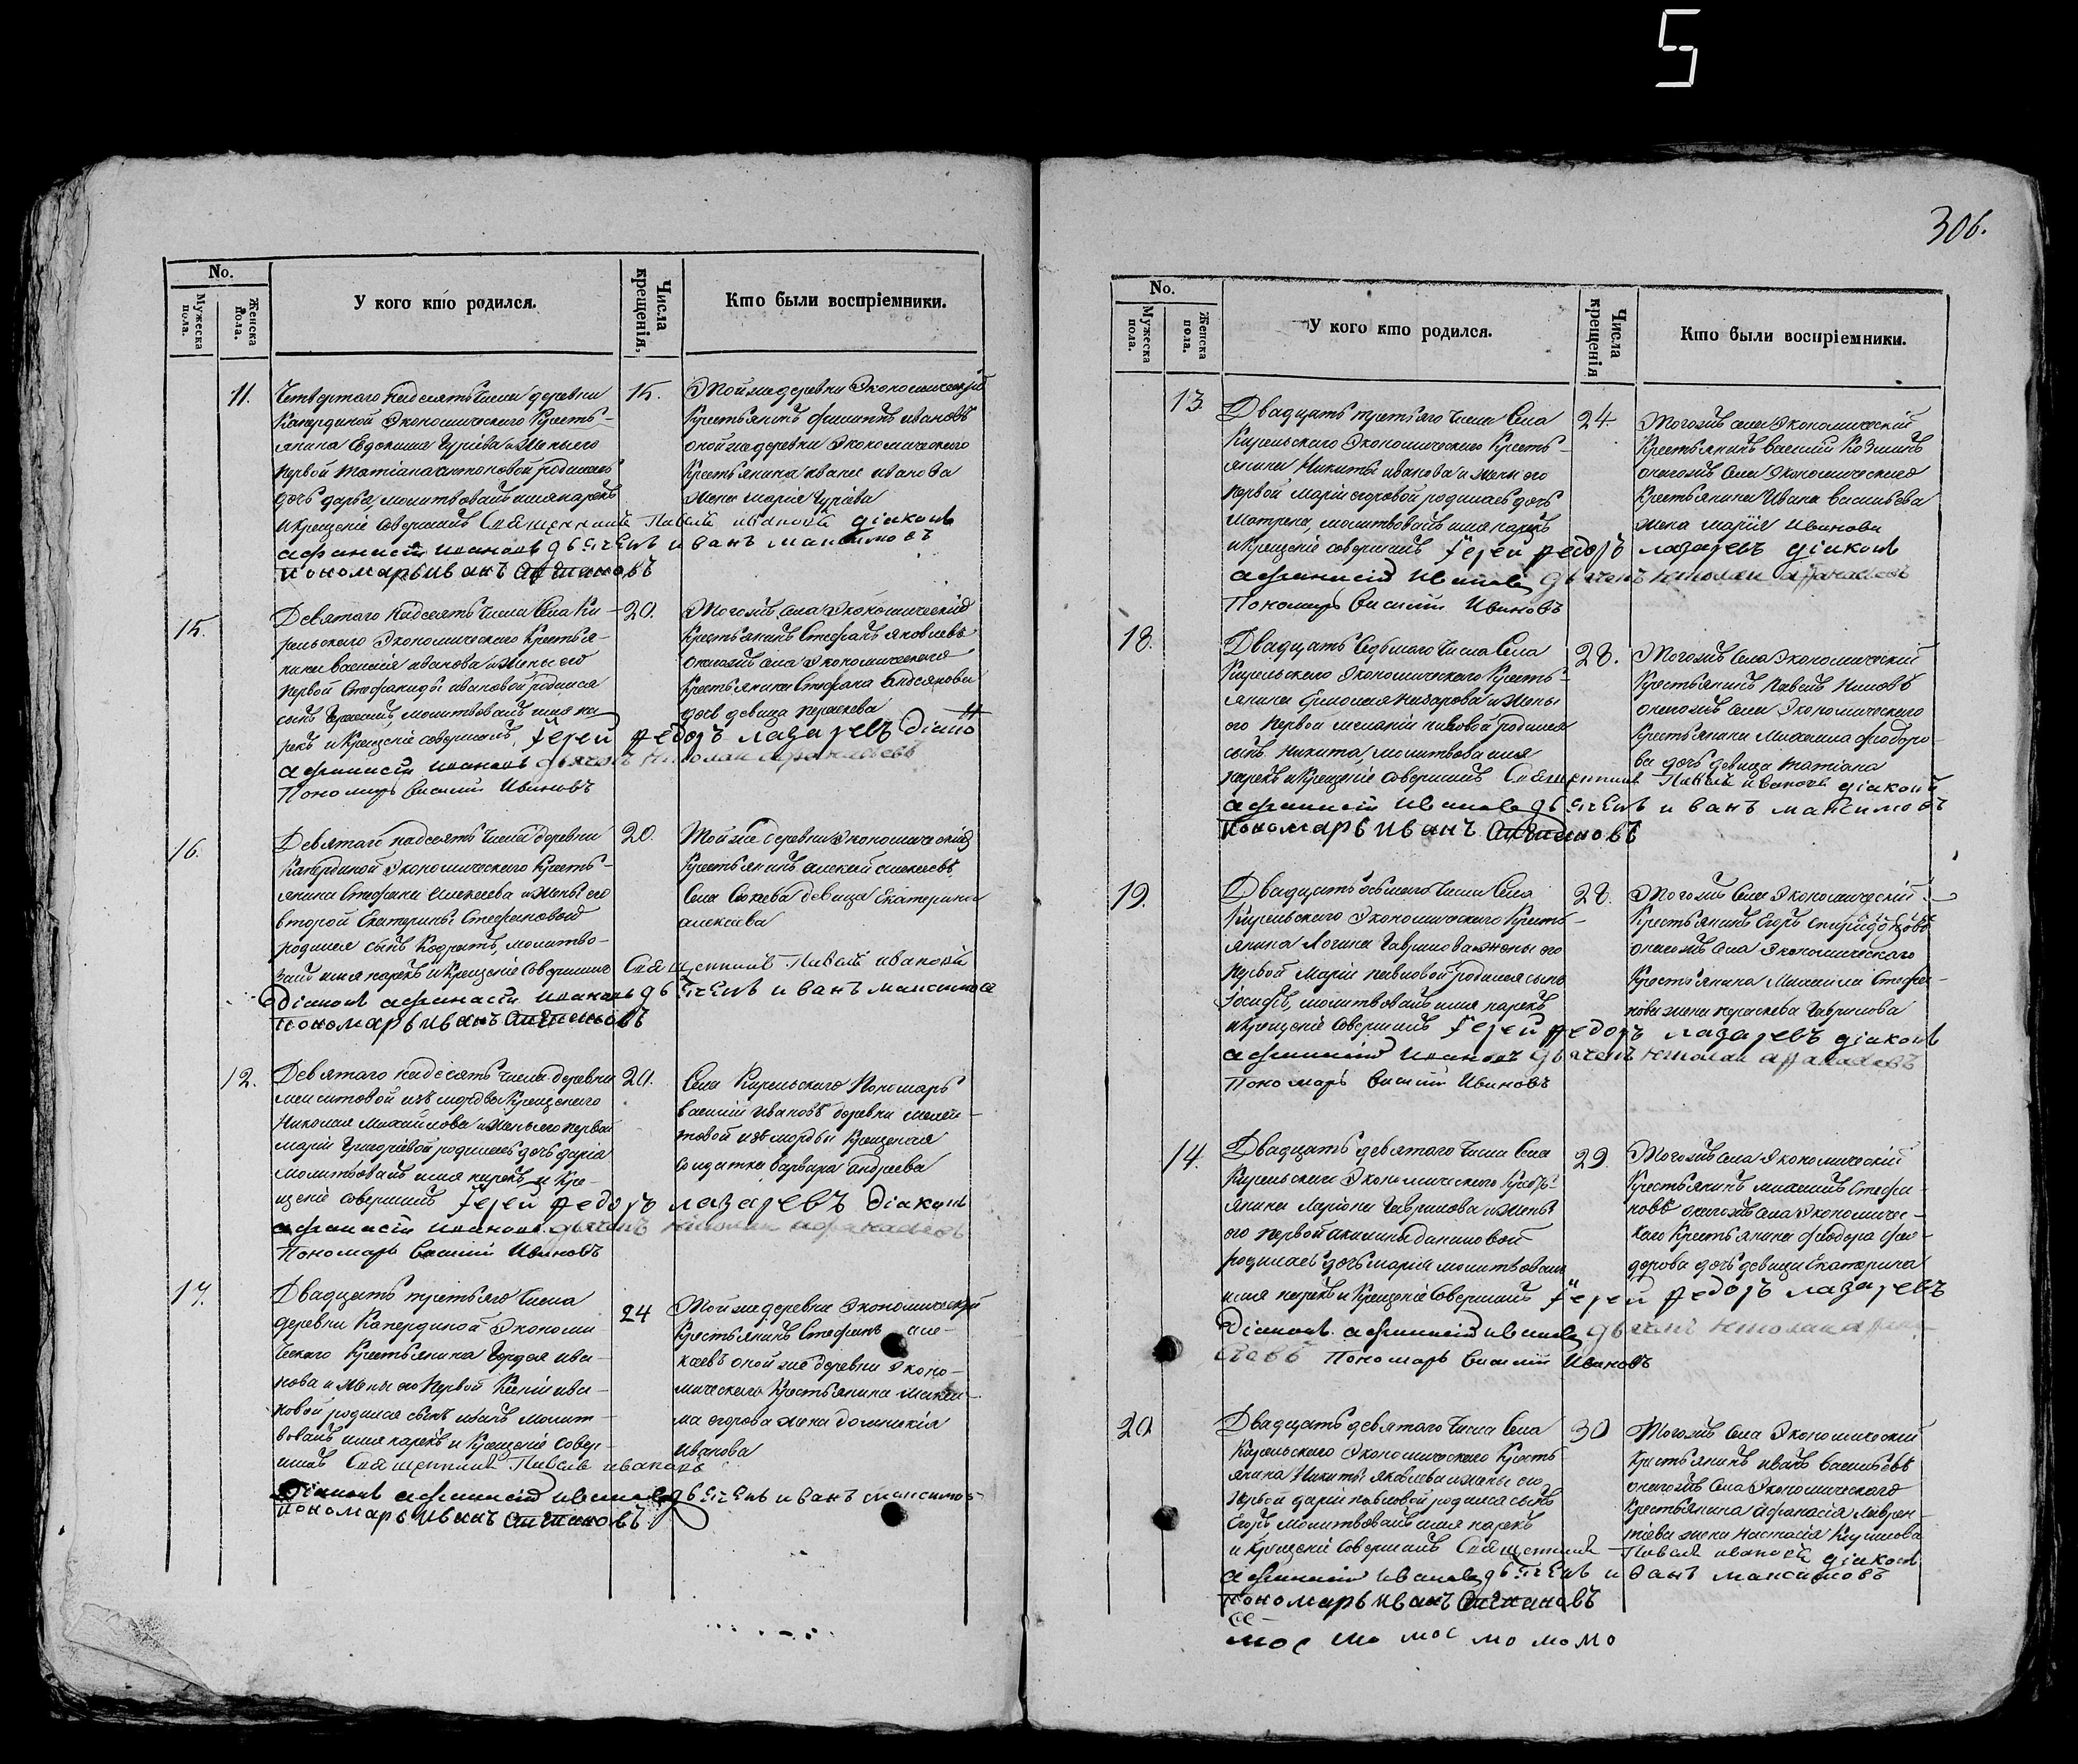 5
306.
No.
Мужеска пола.
Женска пола.
У кого кто родился.
Числа крещенія,
Кто были воспріемники.
11.
Четвертаго надесять числа деревни
Капердиной Экономическаго Кресть-
янина Евдокима Гурiева и жены его
первой Татiаны антоновой родилась
дочь дарья, молитвовалъ имя нарекъ
и крещенiе совершалъ Священникъ Павелъ ивановъ дiаконъ
афанасiй ивановъ дьячекъ иванъ максимовъ
пономарь иванъ
15.
Той же деревни Экономическiй
Крестьянинъ филиппъ ивановъ
оной же деревни Экономическаго
Крестьянина ивана иванова
жена марiя Гурiева
15.
Девятаго надесять числа Села Ки-
рельскаго Экономическаго Крестья-
нина василiя иванова и жены его
первой Стефаниды ивановой родился
сынъ Герасимъ, молитвовалъ имя на-
рекъ и крещенiе совершалъ, Iерей федоръ лазаревъ Дiако
афанасiй ивановъ дьячекъ николай афанасьевъ
Пономарь Василiй Ивановъ
20.
Тогожъ Села Экономическiй
Крестьянинъ Стефанъ яковлевъ
онагожъ села Экономическаго
Крестьянина Стефана
дочь девица параскева
16.
Девятаго надесять числа деревни
Капердиной Экономическаго Кресть-
янина Стефана Алексеева и жены его
второй Екатерины Стефановой
родился сынъ Кодратъ, молитво-
валъ имя нарекъ и Крещенiе Совершилъ Священникъ Павелъ ивановъ
Дiаконъ афанасiй ивановъ дьячекъ иванъ максимовъ
пономарь иванъ
20.
Той же деревни Экономическiй
Крестьянинъ алексей алексеевъ
Села девица Екатерина
алексеева
12.
Девятаго надесять числа деревни
изъ мордвы Крещенаго
Николая михайлова и жены его первой
марiи Григорiевой родилась дочь дарiя
молитвовалъ имя нарекъ и Кре-
щенiе совершилъ Iерей федоръ лазаревъ Дiаконъ
афанасiй ивановъ дьячекъ николай афанасьевъ
Пономарь Василiй Ивановъ
20.
Села Кирельскаго Пономарь
василiй Ивановъ деревни
изъ мордвы Крещеная
солдатка варвара андреева
17.
Двадцать третьяго числа
деревни Капердиной Экономи-
ческаго Крестьянина Гордея ива-
нова и жены его первой ива-
новой родился сынъ иванъ молит-
вовалъ имя нарекъ и Крещенiе совер-
шилъ Священникъ Павелъ ивановъ
Дiаконъ афанасiй ивановъ дьячекъ иванъ максимовъ
пономарь иванъ
24
Той же деревни Экономическiй
Крестьянинъ Стефанъ але-
ксеевъ оной же деревни эконо-
мическаго Крестьянина макси-
ма егорова жена домникiя
иванова
No.
Мужеска пола.
Женска пола.
У кого кто родился.
Числа крещенія
Кто были воспріемники.
13.
Двадцать третьяго числа Села
Кирельскаго Экономическаго Кресть-
янина Никиты иванова и жены его
первой марiи егоровой родилась дочь
Матрена, молитвовалъ имя нарекъ
и Крещенiе совершилъ Iерей федоръ лазаревъ дiаконъ
афанасiй ивановъ дьячекъ николай афанасьевъ
Пономарь Василiй Ивановъ
24.
Тогожъ села Экономическiй
Крестьянинъ василiй Козминъ
онагожъ Села Экономическаго
Крестьянина Ивана васильева
жена марiя Иванова
18.
Двадцать Седьмаго числа Села
Кирельскаго Экономическаго Кресть-
янина Ермолая Назарова и жены
его первой меланiи павловой родился
сынъ Никита, молитвова имя
нарекъ и Крещенiе Совершилъ Священникъ Павелъ ивановъ дiаконъ
афанасiй ивановъ дьячекъ иванъ максимовъ
пономарь иванъ
28.
Тогожъ Села Экономическiй
Крестьянинъ Павелъ
онагожъ села Экономическаго
Крестьянина Михаила феодоро-
ва дочь девица татiана
19.
Двадцать осьмаго числа Села
Кирельскаго Экономическаго Кресть-
янина Логина Гаврилова и жены его
первой Марiи павловой родился сынъ
Iосифъ, молитвовалъ имя нарекъ
и Крещенiе Совершилъ Iерей федоръ лазаревъ дiаконъ
афанасiй ивановъ дьячекъ николай афанасьевъ
Пономарь Василiй Ивановъ
28.
Тогожъ Села Экономическiй
Крестьянинъ Егоръ Спиридоновъ
онагожъ Села Экономическаго
Крестьянина Михаила Стефа-
нова жена параскева Гаврилова
14.
Двадцать девятаго числа Села
Кирельскаго Экономическаго Кресть-
янина Ларiона Гаврилова и жены
его первой акилины даниловой
родилась дочь марiя молитвовалъ
имя нарекъ и Крещенiе Совершилъ Iерей федоръ лазаревъ
Дiаконъ афанасiй ивановъ дьячекъ николай афана-
сьевъ Пономарь Василiй Ивановъ
29.
Тогожъ Села Экономическiй
Крестьянинъ михаилъ Стефа-
новъ онагожъ Села Экономичес-
каго Крестьянина феодора фео-
дорова дочь девица Екатерина
20
Двадцать девятаго числа Села
Кирельскаго Экономическаго Кресть-
янина Никиты яковлева и жены его
первой дарiи павловой родился сынъ
Егоръ молитвовалъ имя нарекъ
и Крещенiе Совершилъ Священникъ Павелъ ивановъ дiаконъ
афанасiй ивановъ дьячекъ иванъ максимовъ
пономарь иванъ
30
Тогожъ Села Экономическiй
Крестьянинъ иванъ васильевъ
онагожъ Села Экономическаго
Крестьянина афанасiя Лаврен-
тiева жена настасiя